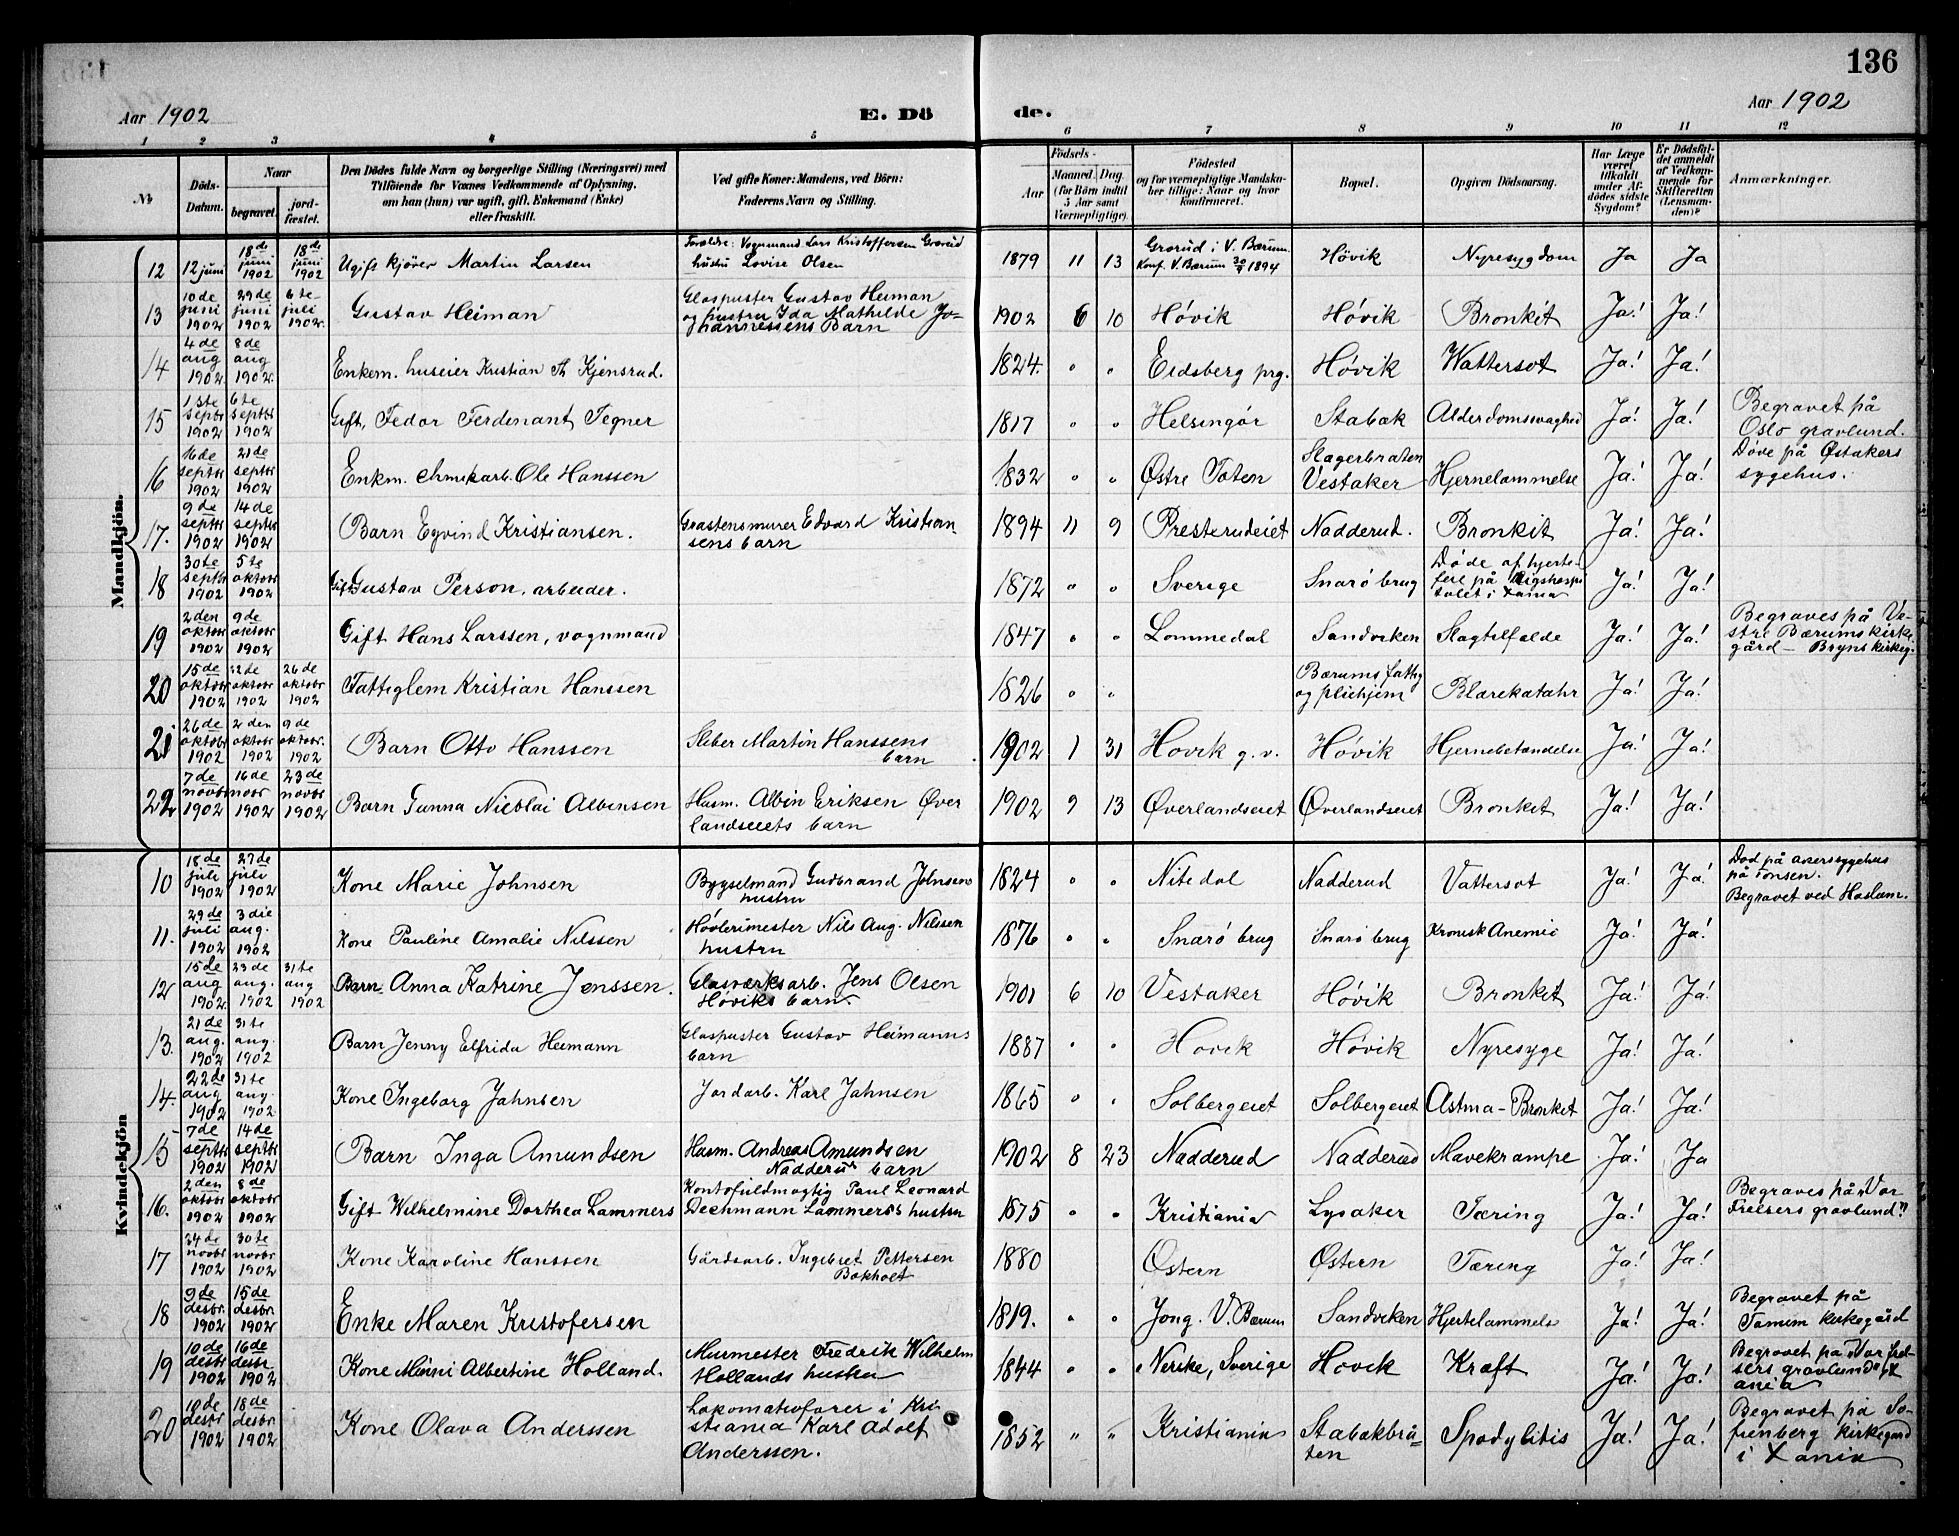 136
Aar 1902
E. Dö
de.
Aar 1902
1 2 3 4 5 6 7 8 9 10 11 12
No
Döds-
Datum.
Naar
begravet.
jord-
fæstet.
Den Dödes fulde Navn og borgerlige Stilling (Næringsvei) med
Tilföiende for Voxnes Vedkommende af Oplysning,
om han (hun) var ugift, gift, Enkemand (Enke)
eller fraskilt.
Ved gifte Koner: Mandens, ved Börn:
Faderens Navn og Stilling.
Födsels-
Aar
Maaned. Dag.
(for Börn indtil
5 Aar samt
Værnepligtige).
Födested
og for værnepligtige Mandska-
ber tillige: Naar og hvor
konfirmeret.
Bopæl.
Opgiven Dödsaarsag.
Har Læge
været
tilkaldt
under Af-
dödes sidste
Sygdom?
Er Dödsfal-
det anmeldt
af Vedkom-
mende for
Skifteretten
(Lensman-
den)?
Anmærkninger.
Mandkjön.
12 12 juni 18de juni 1902 18de juni 1902 Ugift kjører Martin Larsen Forældre: Vognmand Lars Kristoffersen Grorud hustru Lovise Olsen 1879 11 13 Grorud i V. Bærum Konf. V. Bærum 30/9 1894 Høvik Nyresygdom Ja Ja
13 10de juni 1902 29de juni 1902 6te juli 1902. Gustav Heiman Glaspuster Gustav Heiman og hustru Ida Mathilde Johannessens Barn 1902 6 10 Høvik Høvik Bronkit Ja! Ja!
14 4de aug 1902 8de aug 1902. Enkem. huseier Kristian Th Kjensrud. 1824. " " Eidsberg prg. Høvik Wattersot Ja! Ja!
15 1ste septbr 1902 6te septbr 1902 Gift, Fedor Ferdinant Tegner 1817 " " Helsingør Stabæk Alderdomssvaghed Ja! Ja! Begravet på Oslo gravlund.
16 16de septbr 1902 21de septbr 1902 Enkm. Ole Hanssen 1832 " " Østre Toten Slagerbraten Vestaker Hjernelammelse Ja! Ja! Døve på Østakers sygehus.
17. 9de septbr 1902 14de septbr 1902 Barn Eyvind Kristiansen. Gråstensmurer Edvard Kristiansens barn 1894 11 9 Presterudeiet Nadderud. Bronkit Ja! Ja!
18 30te septbr 1902 5te oktobr 1902 Gift Gustav Person, arbeider. 1872 " " Sverige Snarø brug Døde af hjertefeil på Rigshospitalet i Xania Ja! Ja!
19 2den oktobr 1902 9de oktobr 1902 Gift Hans Larssen, vognmand 1847 " " Lommedal Sandviken Slagtilfælde Ja! Ja! Begraves på Vestre Bærums kirkegård - Bryns kirkeg.
20 15de oktobr 1902 22de oktobr 1902 26de oktobr 1902 Fattiglem Kristian Hanssen 1826 " " Bærums fattig og pleiehjem Blærekatahr Ja! Ja!
21 26de oktobr 1902 2den oktobr 1902 9de oktobr. 1902 Barn Otto Hanssen Sliber Martin Hanssens barn 1902 1 31 Høvik g.v. Høvik Hjernebetændelse Ja! Ja!
22 7de novbr 1902 16de novbr 1902 23de novbr 1902 Barn Gunna Nicolai Albinsen Husm. Albin Eriksen Øverlandseiets barn 1902 9 13 Øverlandseiet Øverlandseiet Bronkit Ja! Ja!
Kvindekjön
10 18de juli 1902 27de juli 1902 Kone Marie Johnsen Bygselmand Gudbrand Johnsens hustru 1824 " " Nitedal Nadderud Vattersot Ja! Ja! Død på akerssygehus på Tonsen. Begravet ved Haslum.
11. 29de juli 1902 3die aug. 1902 Kone Pauline Amalie Nilssen Høvlerimester Nils Aug. Nilsen hustru 1876 " " Snarø brug Snarø brug Kronisk Anemie Ja! Ja!
12 15de aug 1902. 23de aug. 1902 31te aug 1902 Barn Anna Katrine Jenssen. Glasværksarb. Jens Olsen Høviks barn. 1901 6 10 Vestaker Høvik Bronkit Ja! Ja!
13. 21de aug. 1902 31te aug. 1902 Barn Jenny Elfrida Heimann Glaspuster Gustav Heimanns barn 1887 " " Høvik Høvik Nyresyge Ja! Ja!
14. 22de aug 1902 31te aug. 1902. Kone Ingeborg Jahnsen Jordarb. Karl Jahnsen 1865 " " Solbergeiet Solbergeiet Astma-Bronkit Ja! Ja!
15 7de septbr 1902 14de septbr 1902 Barn Inga Amundsen Husm. Andreas Amundsen Nadderud barn 1902 8 23 Nadderud Nadderud Mavekrampe Ja! Ja
16. 2den oktobr 1902 8de oktobr 1902 Gift Wilhelmine Dorthea Lammers Kontofuldmægtig Paul Leonard Dechmann Lammers's hustru 1875 " " Kristiania Lysaker Tæring Ja! Ja! Begraves på "Vor Frelsers gravlund"
17 24de novbr 1902 30te novbr 1902 Kone Karoline Hanssen Gårdsarb. Ingebret Pettersen Bokholt 1880 Østern Østern Tæring Ja! Ja!
18 9de desbr. 1902 15de desbr. 1902 Enke Maren Kristofersen 1819. " " Jong. V. Bærum Sandviken Hjertelammels Ja! Ja! Begravet på Tanum kirkegård
19 10de desbr 1902 16de desbr 1902 Kone Minni Albertine Holland. Murmester Fredrik Wilhelm Hollands hustru 1844 " " Nerike, Sverige Høvik Kræft Ja! Ja! Begravet på "Vor frelsers gravlund" Xania
20 10de desbr 1902 18de desbr 1902 Kone Olava Anderssen Lokomotivfører i Kristiania Karl Adolf Anderssen. 1852 " " Kristiania Stabækbråten Spodylitis Ja! Ja! Begravet på Sofienberg kirkegård i Xania